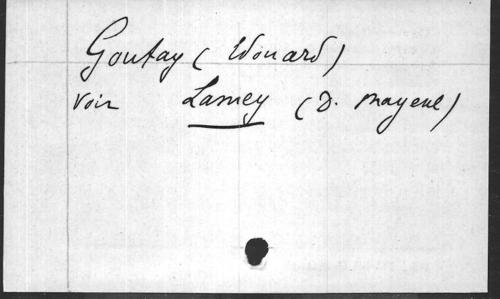 Goutay (Edouard)
voir Lamey (D. Mayeul)